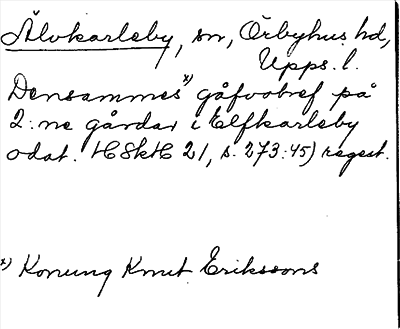 Älvkarleby, sn, Örbyhus hd,
Upps. l.
Densammes x) gåfvobref på
2:ne gårdar i Elfkarleby
odat. HSkH 21, s. 273:45) regest.
x) Konung Knut Erikssons